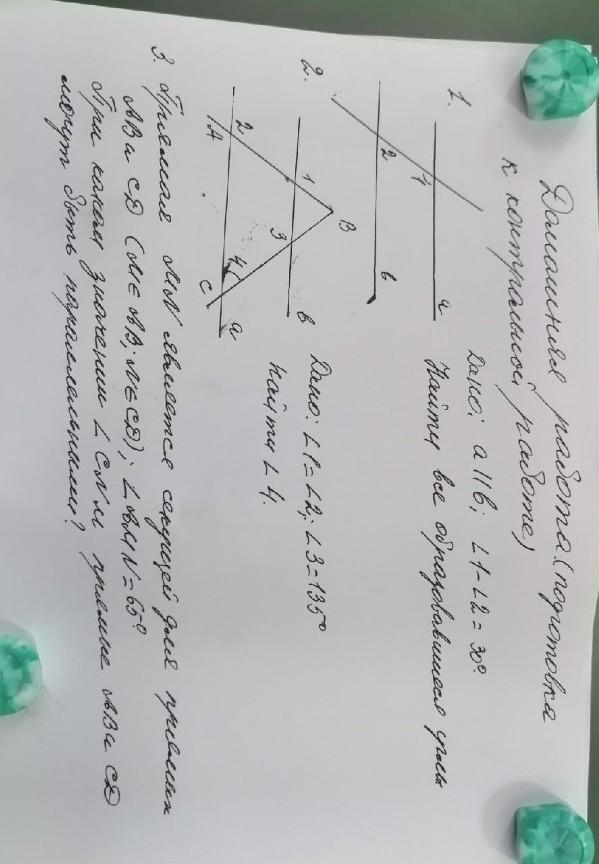 Домашняя работа (подготовка
к контрольной работе)
1.
Дано: a II b; ∠1-∠2=30°.
Найти все образовавшиеся углы
1
a
2
b
2.
Дано: ∠1=∠2; ∠3=135°
Найти ∠4.
B
1
3
b
2
4
A
C
a
3. Прямая MN является секущей для прямых
AB и CD (M∈AB; N∈CD); ∠AMN=65°.
При каком значении ∠CNM прямые AB и CD
могут быть параллельными?